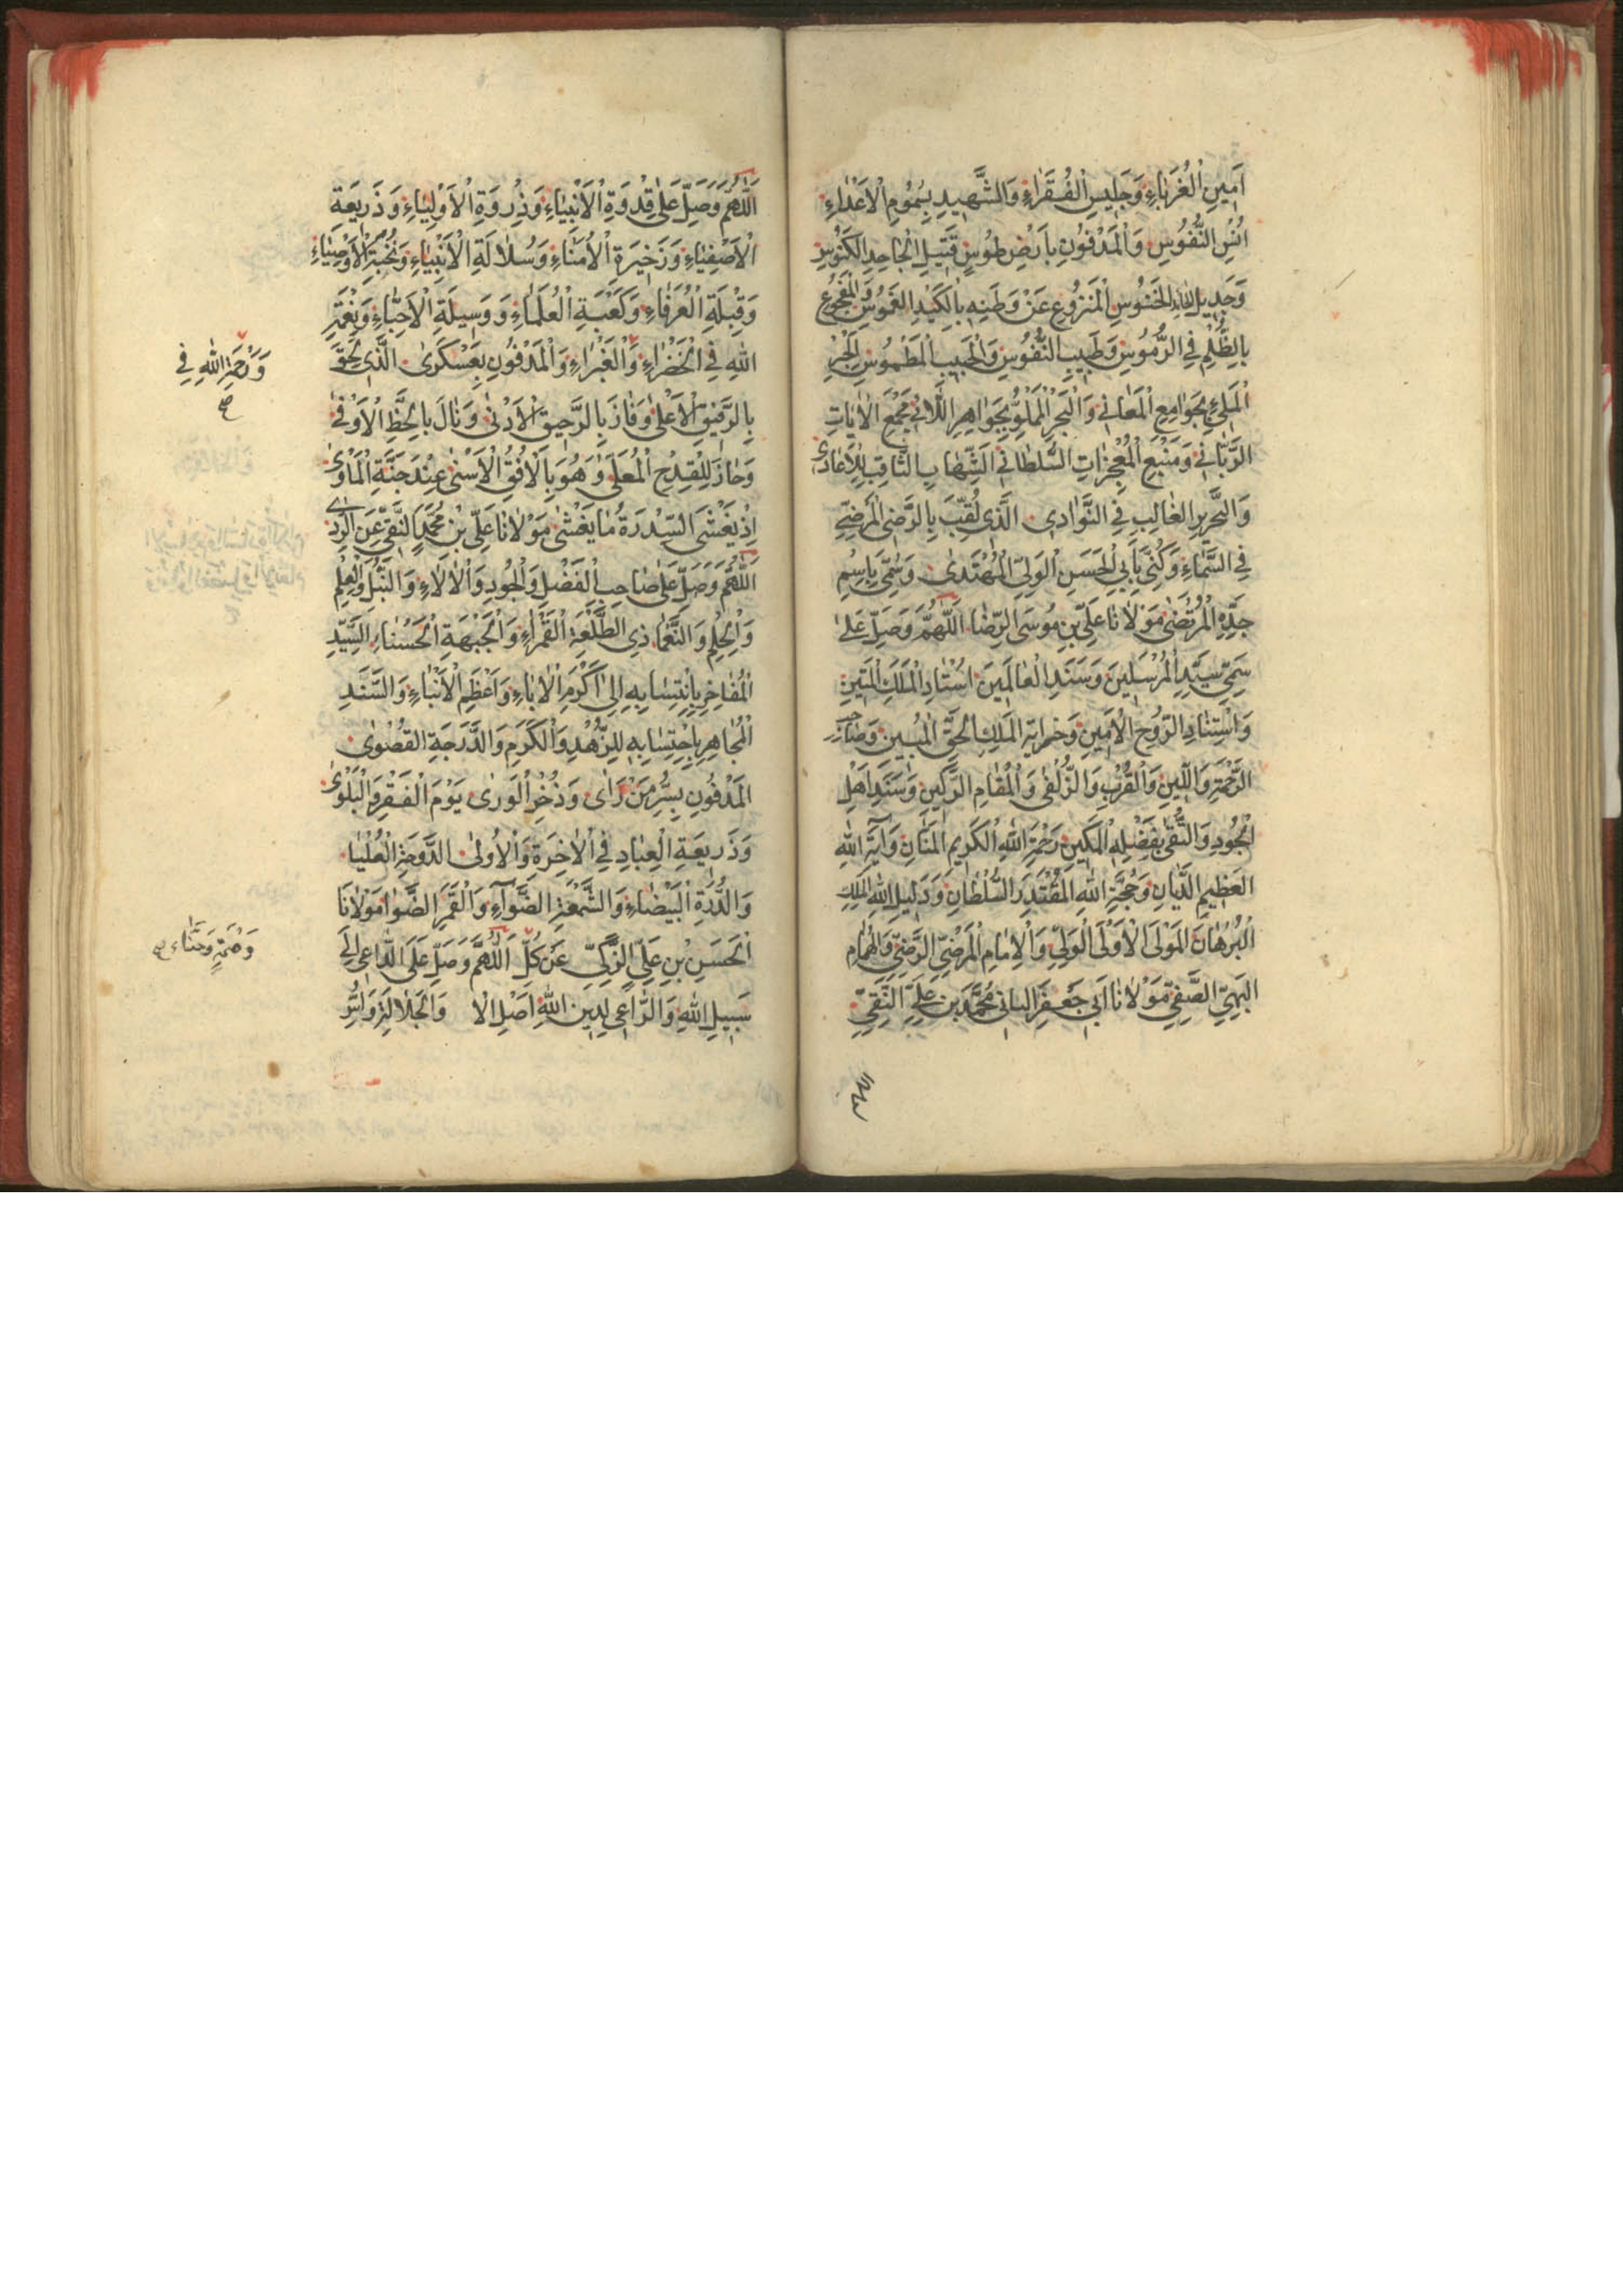 اَمِينِ الْغُرَبَاءِ وَجَلِيسِ الْفُقَرَاءِ وَالشَّهِيدِ بِسُمُومِ الْاَعْدَاءِ
اُنْسِ النُّفُوسِ وَالْمَدْفُونِ بِاَرْضِ طُوسٍ قَتِيلِ الْجَاحِدِ
الْمَنْزُوعِ عَنْ وَطَنِهِ بِالْكَيْدِ الْغَمُوسِ
بِالظُّلْمِ فِي الرُّمُوسِ وَطَبِيبِ النُّفُوسِ وَالْحَبِيبِ الْمَطْمُوسِ
بِجَوَامِعِ الْمَعَانِي وَالْبَحْرِ الْمَمْلُوِّ بِجَوَاهِرِ اللَّئَانِي مَجْمَعِ الْاٰيَاتِ
الرَّبَّانِي وَمَنْبَعِ الْمُعْجِزَاتِ السُّلْطَانِي الشِّهَابِ الثَّاقِبِ لِلْاَعَادِي
وَالنِّحْرِيرِ الْغَالِبِ فِي النَّوَادِي الَّذِي لُقِّبَ بِالرِّضَى الْمَرْضِيِّ
فِي السَّمَاءِ وَكُنِّيَ بِاَبِي الْحَسَنِ الْوَلِيِّ الْمُهْتَدَى وَسُمِّيَ بِاسْمِ
جَدِّهِ الْمُرْتَضٰى مَوْلَانَا عَلِيِّ بْنِ مُوسَى الرِّضَا اَللّٰهُمَّ وَصَلِّ عَلٰى
سَمِيِّ سَيِّدِ الْمُرْسَلِينَ وَسَنَدِ الْعَالَمِينَ اُسْتَادِ الْمَلَكِ الْمَتِينِ
وَاسْتِنَادِ الرُّوحِ الْاَمِينِ وَخِزَانَةِ الْمَلِكِ الْحَقِّ الْمُبِينِ وَصَاحِبِ
الرَّحْمَةِ وَاللِّينِ وَالْقُرْبِ وَالزُّلْفٰى وَالْمَقَامِ الرَّكِينِ وَسَنَدِ اَهْلِ
الْجُودِ وَالتُّقٰى بِفَضْلِهِ الْمَكِينِ رَحْمَةِ اللهِ الْكَرِيمِ الْمَنَّانِ وَآيَةِ اللهِ
الْعَظِيمِ الدَّيَّانِ وَحُجَّةِ اللهِ الْمُقْتَدِرِ السُّلْطَانِ وَدَلِيلِ اللهِ الْمَلِكِ
الْبُرْهَانِ الْمَوْلَى الْاَوْلَى الْوَلِيِّ وَالْاِمَامِ الْمَرْضِيِّ الرَّضِيِّ وَالْهُمَامِ
الْبَهِيِّ الصَّفِيِّ مَوْلَانَا اَبِي جَعْفَرٍ الثَّانِي مُحَمَّدِ بْنِ عَلِيٍّ التَّقِيِّ
اَللّٰهُمَّ وَصَلِّ عَلٰى قِدْوَةِ الْاَنْبِيَاءِ وَذِرْوَةِ الْاَوْلِيَاءِ وَذَرِيعَةِ
الْاَصْفِيَاءِ وَذَخِيرَةِ الْاُمَنَاءِ وَسُلَالَةِ الْاَنْبِيَاءِ وَنُخْبَةِ الْاَوْصِيَاءِ
وَقِبْلَةِ الْعُرَفَاءِ وَكَعْبَةِ الْعُلَمَاءِ وَوَسِيلَةِ الْاَحِبَّاءِ وَنِعْمَةِ
اللهِ فِي الْخَضْرَاءِ وَالْغَبْرَاءِ وَالْمَدْفُونِ بِعَسْكَرَى الَّذِي لَحِقَ
وَرَحْمَةِ اللهِ فِي
بِالرَّفِيقِ الْاَعْلٰى وَفَازَ بِالرَّحِيقِ الْاَدْنٰى وَنَالَ بِالْحَظِّ الْاَوْفٰى
وَحَازَ لِلْقِدْحِ الْمُعَلّٰى وَهُوَ بِالْاُفُقِ الْاَسْنٰى عِنْدَ جَنَّةِ الْمَاْوٰى
اِذْ يَغْشَى السِّدْرَةَ مَا يَغْشٰى مَوْلَانَا عَلِيِّ بْنِ مُحَمَّدٍ النَّقِيِّ عَنِ
اَللّٰهُمَّ وَصَلِّ عَلٰى صَاحِبِ الْفَضْلِ وَالْجُودِ وَالْاٰلَاءِ وَالنُّبْلِ وَالْعِلْمِ
وَالْحِلْمِ وَالنَّعْمَا ذِي الطَّلْعَةِ الْقَمْرَاءِ وَالْجَبْهَةِ الْحَسْنَاءِ السَّيِّدِ
الْمُفَاخِرِ بِانْتِسَابِهِ اِلٰى اَكْرَمِ الْاٰبَاءِ وَاَعْظَمِ الْاَنْبَاءِ وَالسَّنَدِ
الْمُجَاهِرِ بِاحْتِسَابِهِ لِلزُّهْدِ وَالْكَرَمِ وَالدَّرَجَةِ الْقُصْوٰى
الْمَدْفُونِ بِسُرَّ مَنْ رَاٰى وَذُخْرِ الْوَرٰى يَوْمَ الْفَقْرِ وَالْبَلْوٰى
وَذَرِيعَةِ الْعِبَادِ فِي الْاٰخِرَةِ وَالْاُولٰى الدَّوْحَةِ الْعُلْيَا
وَالدُّرَّةِ الْبَيْضَاءِ وَالشَّمْعَةِ الضَّوْآءِ وَالْقَمَرِ الضَّوَا مَوْلَانَا
الْحَسَنِ بْنِ عَلِيٍّ الزَّكِيِّ عَنْ كُلِّ اَللّٰهُمَّ وَصَلِّ عَلَى الدَّاعِي اِلٰى
سَبِيلِ اللهِ وَالرَّاعِي لِدِينِ اللهِ اَصْلِ الْاٰلَا وَالْجَلَالَةِ